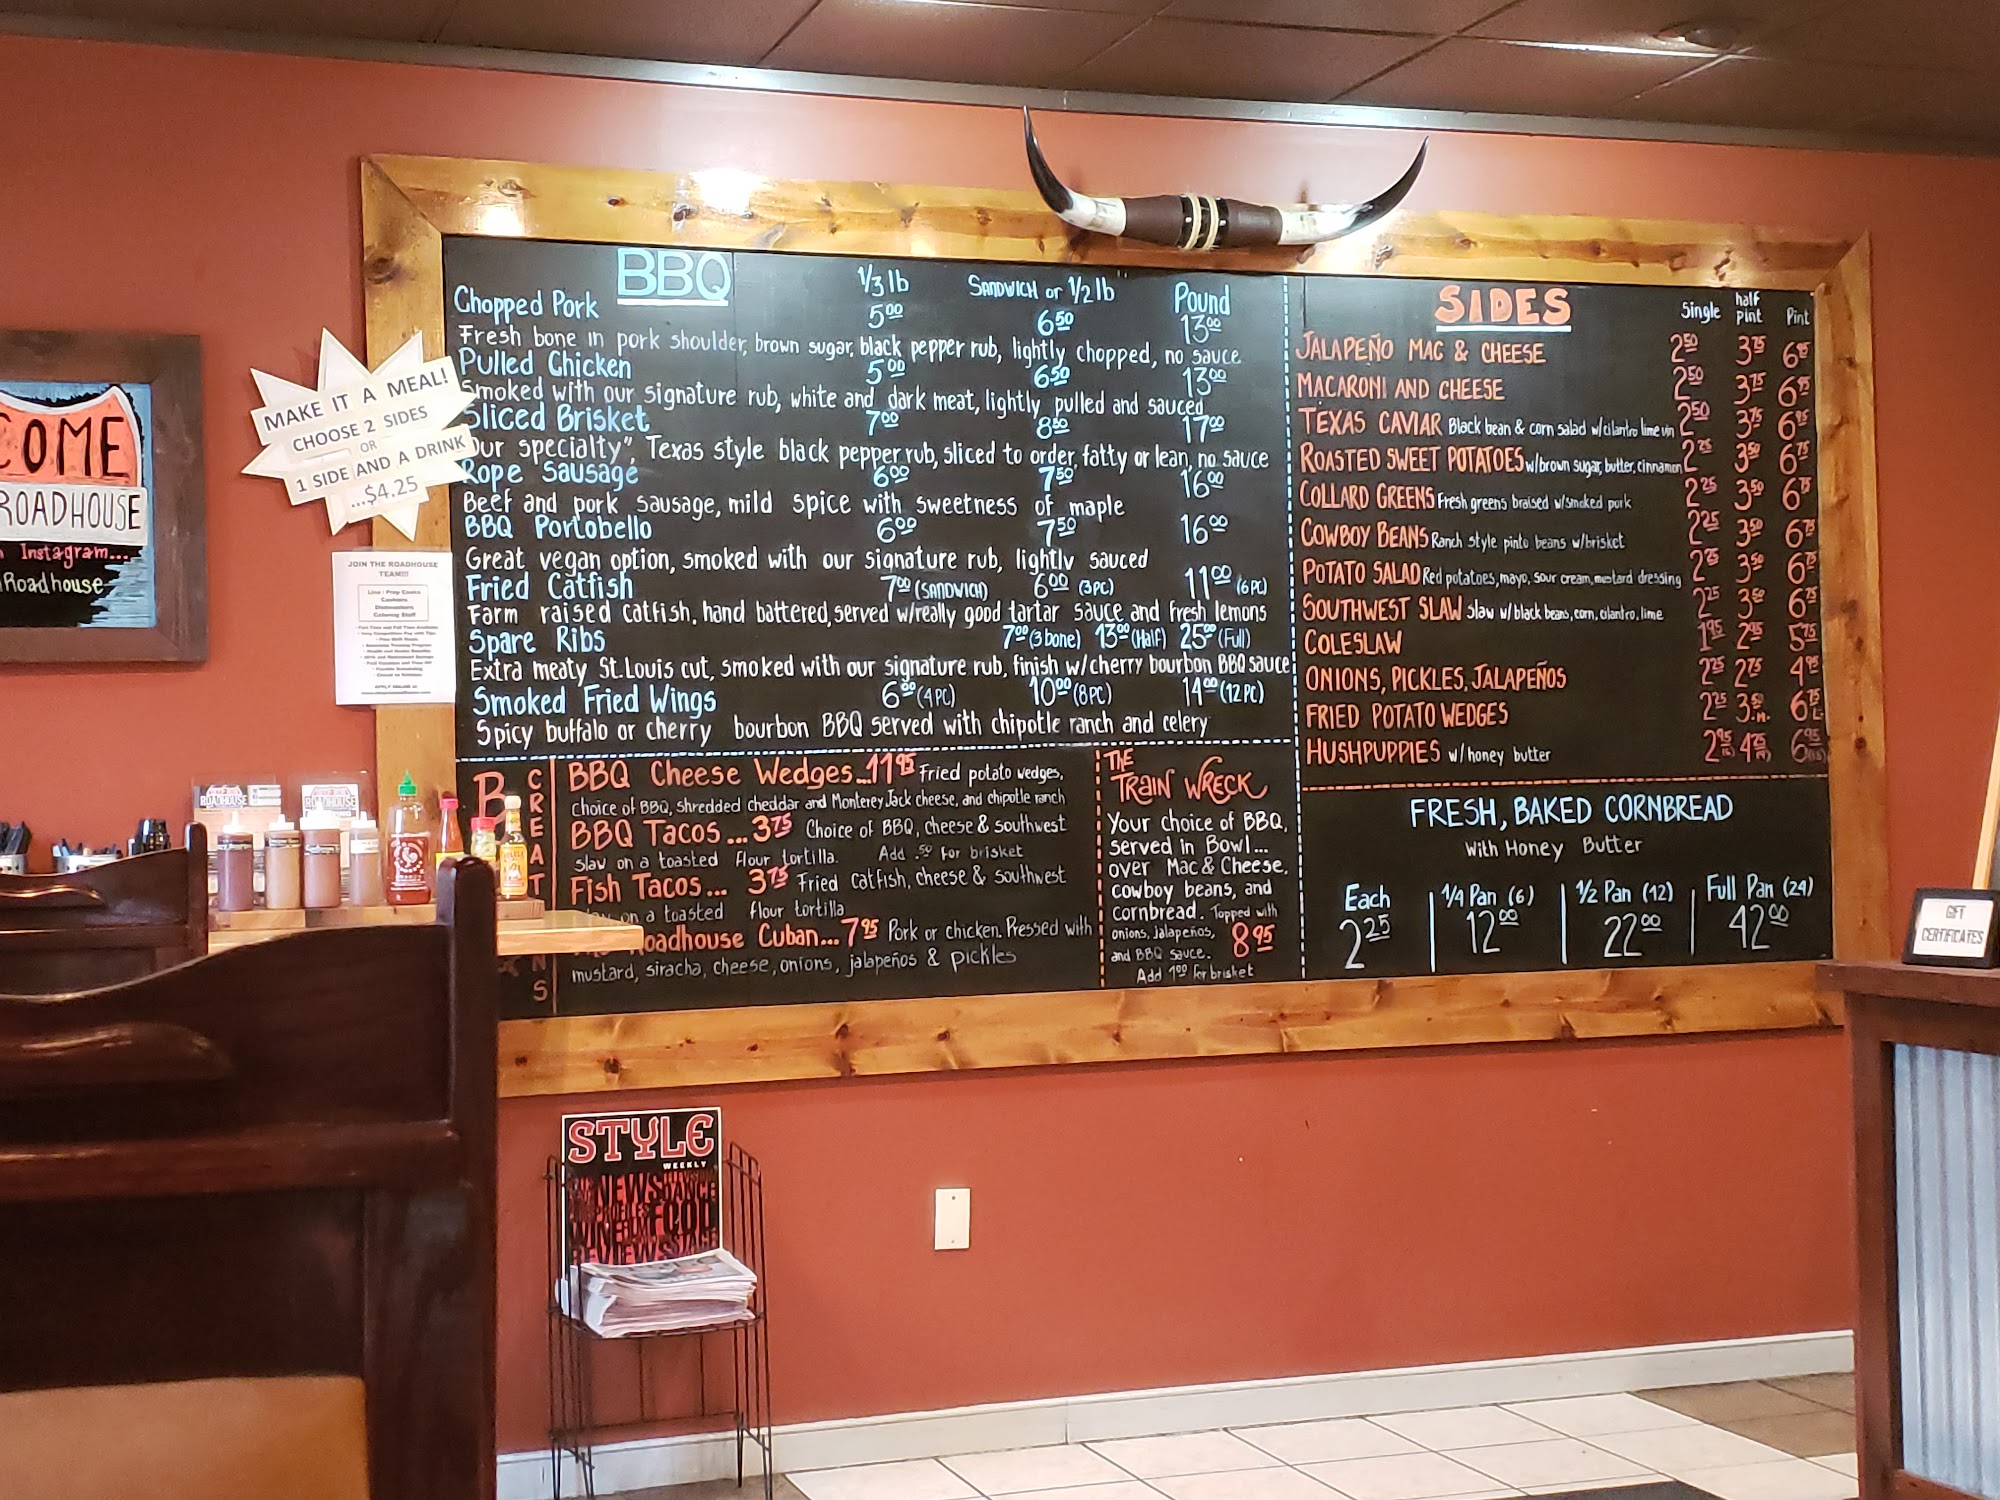 COME
ROADHOUSE
Instagram...
Roadhouse
MAKE IT A MEAL!
CHOOSE 2 SIDES
OR
1 SIDE AND A DRINK
...$4.25
JOIN THE ROADHOUSE
TEAM!!!
Line / Prep Cooks
Cashiers
Dishwashers
Catering Staff
BBQ 1/3 lb SANDWICH or 1/2 lb Pound
Chopped Pork 5.00 6.50 13.00
Fresh bone in pork shoulder, brown sugar, black pepper rub, lightly chopped, no sauce
Pulled Chicken 5.00 6.50 13.00
Smoked with our signature rub, white and dark meat, lightly pulled and sauced
Sliced Brisket 7.00 8.50 17.00
Our specialty", Texas style black pepper rub, sliced to order, fatty or lean, no sauce
Rope Sausage 6.00 7.50 16.00
Beef and pork sausage, mild spice with sweetness of maple
BBQ Portobello 6.00 7.50 16.00
Great vegan option, smoked with our signature rub, lightly sauced
Fried Catfish 7.00 (SANDWICH) 6.00 (3PC) 11.00 (6PC)
Farm raised catfish, hand battered, served w/really good tartar sauce and fresh lemons
Spare Ribs 7.00 (3 bone) 13.00 (Half) 25.00 (Full)
Extra meaty St. Louis cut, smoked with our signature rub, finish w/cherry bourbon BBQ sauce
Smoked Fried Wings 6.00 (4PC) 10.00 (8PC) 14.00 (12PC)
Spicy buffalo or cherry bourbon BBQ served with chipotle ranch and celery
BBQ Cheese Wedges...11.95 Fried potato wedges,
choice of BBQ, shredded cheddar and Monterey Jack cheese, and chipotle ranch
BBQ Tacos ... 3.75 Choice of BBQ, cheese & southwest
slaw on a toasted flour tortilla. Add .50 for brisket
Fish Tacos... 3.75 Fried catfish, cheese & southwest
on a toasted flour tortilla
Roadhouse Cuban...7.95 Pork or chicken. Pressed with
mustard, siracha, cheese, onions, jalapeños & pickles
THE
TRAIN WRECK
Your choice of BBQ,
served in Bowl...
over Mac & Cheese,
cowboy beans, and
cornbread. Topped with
onions, jalapeños, 8.95
and BBQ sauce.
Add 1.00 for brisket
SIDES Single half pint Pint
JALAPEÑO MAC & CHEESE 2.50 3.75 6.95
MACARONI AND CHEESE 2.50 3.75 6.95
TEXAS CAVIAR Black bean & corn salad w/cilantro lime vin 2.50 3.75 6.95
ROASTED SWEET POTATOES w/brown sugar, butter, cinnamon 2.25 3.50 6.75
COLLARD GREENS Fresh greens braised w/smoked pork 2.25 3.50 6.75
COWBOY BEANS Ranch style pinto beans w/brisket 2.25 3.50 6.75
POTATO SALAD Red potatoes, mayo, sour cream, mustard dressing 2.25 3.50 6.75
SOUTHWEST SLAW slaw w/black beans, corn, cilantro, lime 2.25 3.50 6.75
COLESLAW 1.95 2.95 5.75
ONIONS, PICKLES, JALAPEÑOS 2.25 2.75 4.95
FRIED POTATO WEDGES 2.25 3.50 M. 6.75 L.
HUSHPUPPIES w/honey butter 2.95 4.75 6.95
FRESH, BAKED CORNBREAD
with Honey Butter
Each 1/4 Pan (6) 1/2 Pan (12) Full Pan (24)
2.25 12.00 22.00 42.00
GIFT
CERTIFICATES
STYLE
WEEKLY
NEWS
FOOD